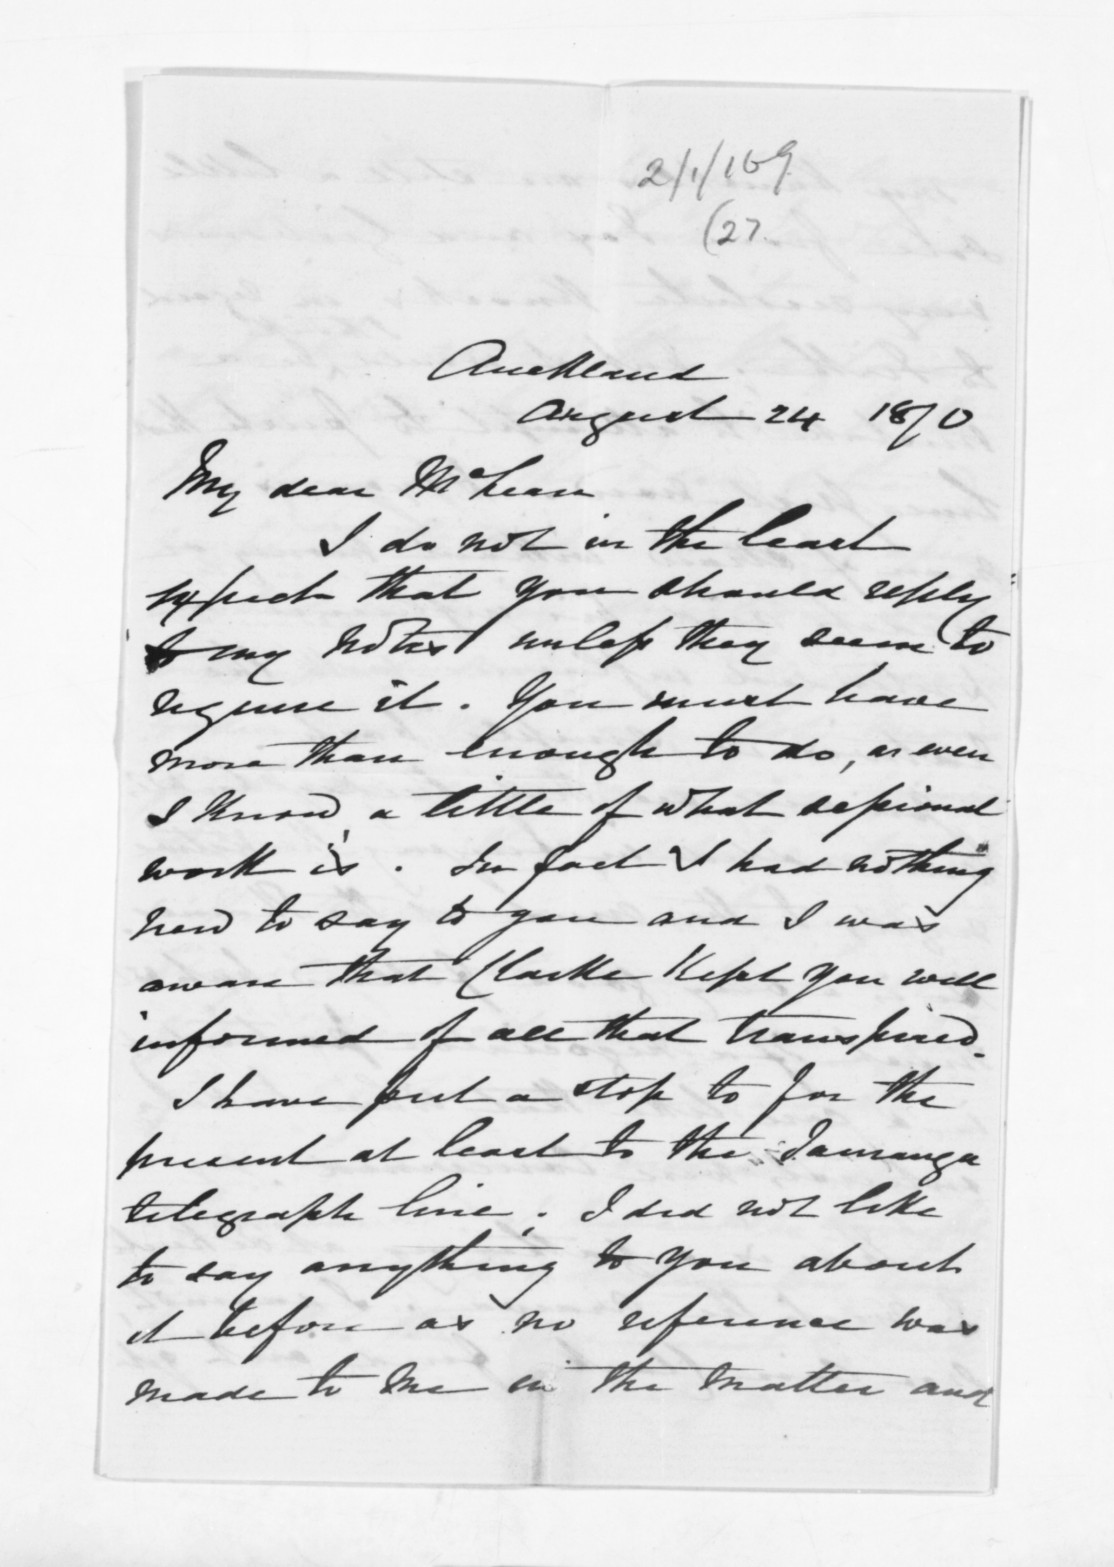 2/1/169
(27.
Auckland
August 24 1870
My dear McLean
I do not in the least
expect that you should reply
to my notes unless they seem to
require it. You must have
more than enough to do, as even
I know a little of what sessional
work is. In fact I had nothing
new to say to you and I was
aware that Clarke kept you well
informed of all that transpired.
I have put a stop to for the
present at least to the Tauranga
telegraph line; I did not like
to say anything to you about
it before as no reference was
made to me in the matter and